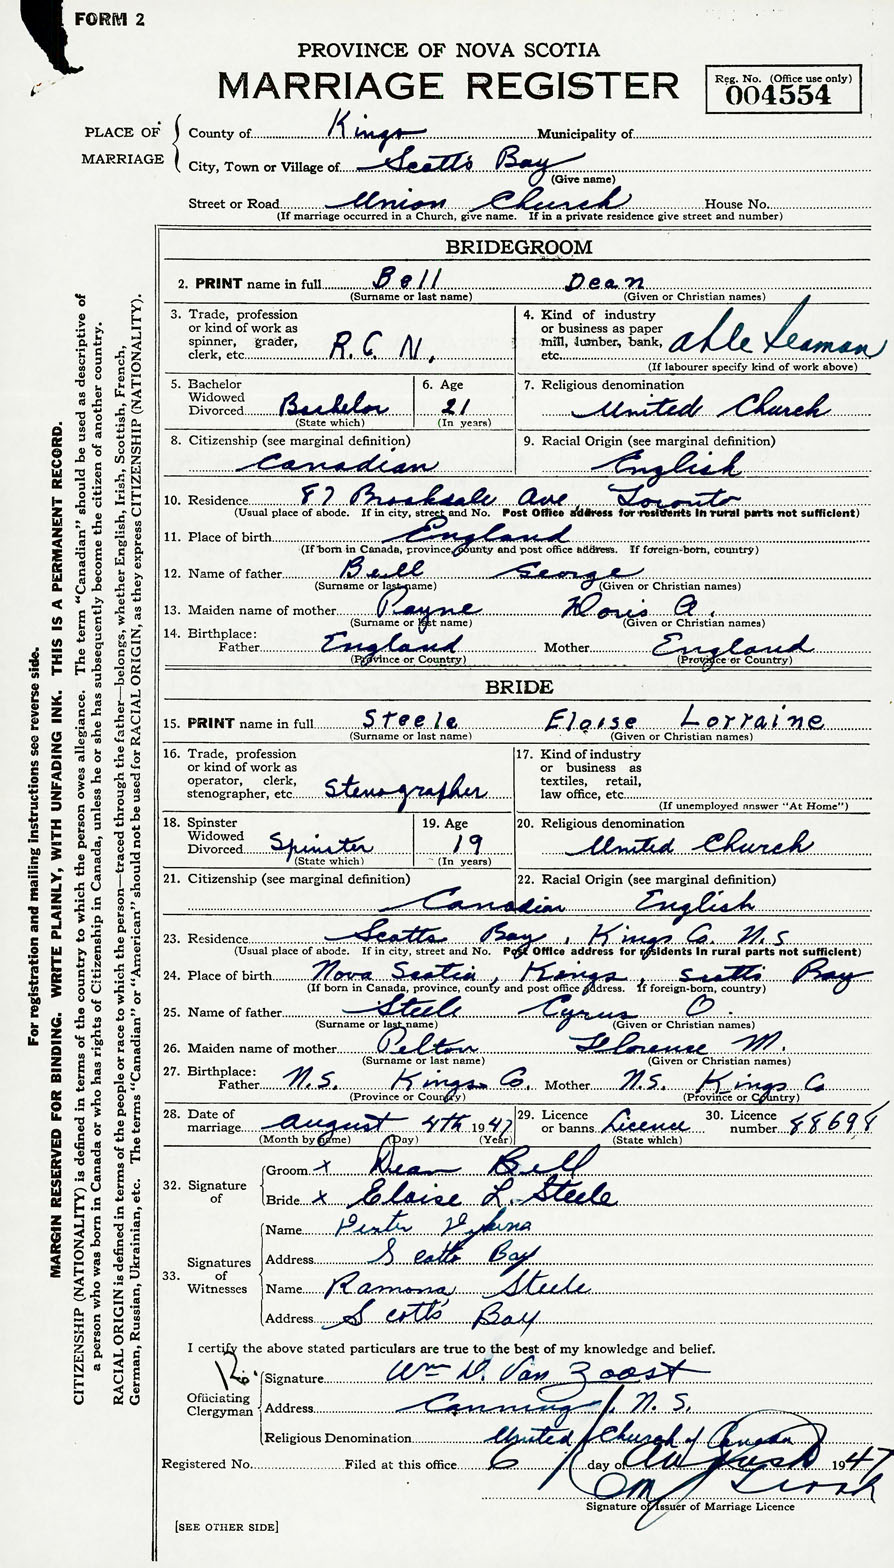 FORM 2
PROVINCE OF NOVA SCOTIA
MARRIAGE REGISTER
Reg. No. (Office use only)
004554
PLACE OF MARRIAGE
County of Kings Municipality of
City, Town or Village of Scotts Bay
(Give name)
Street or Road Union Church House No.
(If marriage occurred in a Church, give name. If in a private residence give street and number)
BRIDEGROOM
2. PRINT name in full Bell Dean
(Surname or last name) (Given or Christian names)
3. Trade, profession or kind of work as spinner, grader, clerk, etc. R.C.N.
4. Kind of industry or business as paper mill, lumber, bank, etc. Able Seaman
(If labourer specify kind of work above)
5. Bachelor Widowed Divorced Bachelor
(State which)
6. Age 21
(In years)
7. Religious denomination
United Church
8. Citizenship (see marginal definition)
Canadian
9. Racial Origin (see marginal definition)
English
10. Residence 87 Brookdale Ave, Toronto
(Usual place of abode. If in city, street and No. Post Office address for residents in rural parts not sufficient)
11. Place of birth England
(If born in Canada, province, county and post office address. If foreign-born, country)
12. Name of father Bell George
(Surname or last name) (Given or Christian names)
13. Maiden name of mother Payne Doris A.
(Surname or last name) (Given or Christian names)
14. Birthplace:
Father England Mother England
(Province or Country) (Province or Country)
BRIDE
15. PRINT name in full Steele Eloise Lorraine
(Surname or last name) (Given or Christian names)
16. Trade, profession or kind of work as operator, clerk, stenographer, etc. Stenographer
17. Kind of industry or business as textiles, retail, law office, etc.
(If unemployed answer "At Home")
18. Spinster Widowed Divorced Spinster
(State which)
19. Age 19
(In years)
20. Religious denomination
United Church
21. Citizenship (see marginal definition)
Canadian
22. Racial Origin (see marginal definition)
English
23. Residence Scotts Bay, Kings Co. N.S
(Usual place of abode. If in city, street and No. Post Office address for residents in rural parts not sufficient)
24. Place of birth Nova Scotia, Kings, Scotts Bay
(If born in Canada, province, county and post office address. If foreign-born, country)
25. Name of father Steele Cyrus O.
(Surname or last name) (Given or Christian names)
26. Maiden name of mother Pelton Florence M.
(Surname or last name) (Given or Christian names)
27. Birthplace:
Father N.S. Kings Co. Mother N.S. Kings Co
(Province or Country) (Province or Country)
28. Date of marriage August 4th 1947
(Month by name) (Day) (Year)
29. Licence or banns Licence
(State which)
30. Licence number 88698
32. Signature of
Groom x Dean Bell
Bride x Eloise L. Steele
33. Signatures of Witnesses
Name
Address Scotts Bay
Name Ramona Steele
Address Scotts Bay
I certify the above stated particulars are true to the best of my knowledge and belief.
Officiating Clergyman
Signature Wm D. Van Zoost
Address Canning, N.S.
Religious Denomination United Church of Canada
Registered No. Filed at this office 6 day of August 1947
Signature of Issuer of Marriage Licence
[SEE OTHER SIDE]
For registration and mailing instructions see reverse side.
MARGIN RESERVED FOR BINDING. WRITE PLAINLY, WITH UNFADING INK. THIS IS A PERMANENT RECORD.
CITIZENSHIP (NATIONALITY) is defined in terms of the country to which the person owes allegiance. The term "Canadian" should be used as descriptive of
a person who was born in Canada or who has rights of Citizenship in Canada, unless he or she has subsequently become the citizen of another country.
RACIAL ORIGIN is defined in terms of the people or race to which the person—traced through the father—belongs, whether English, Irish, Scottish, French,
German, Russian, Ukrainian, etc. The terms "Canadian" or "American" should not be used for RACIAL ORIGIN, as they express CITIZENSHIP (NATIONALITY).